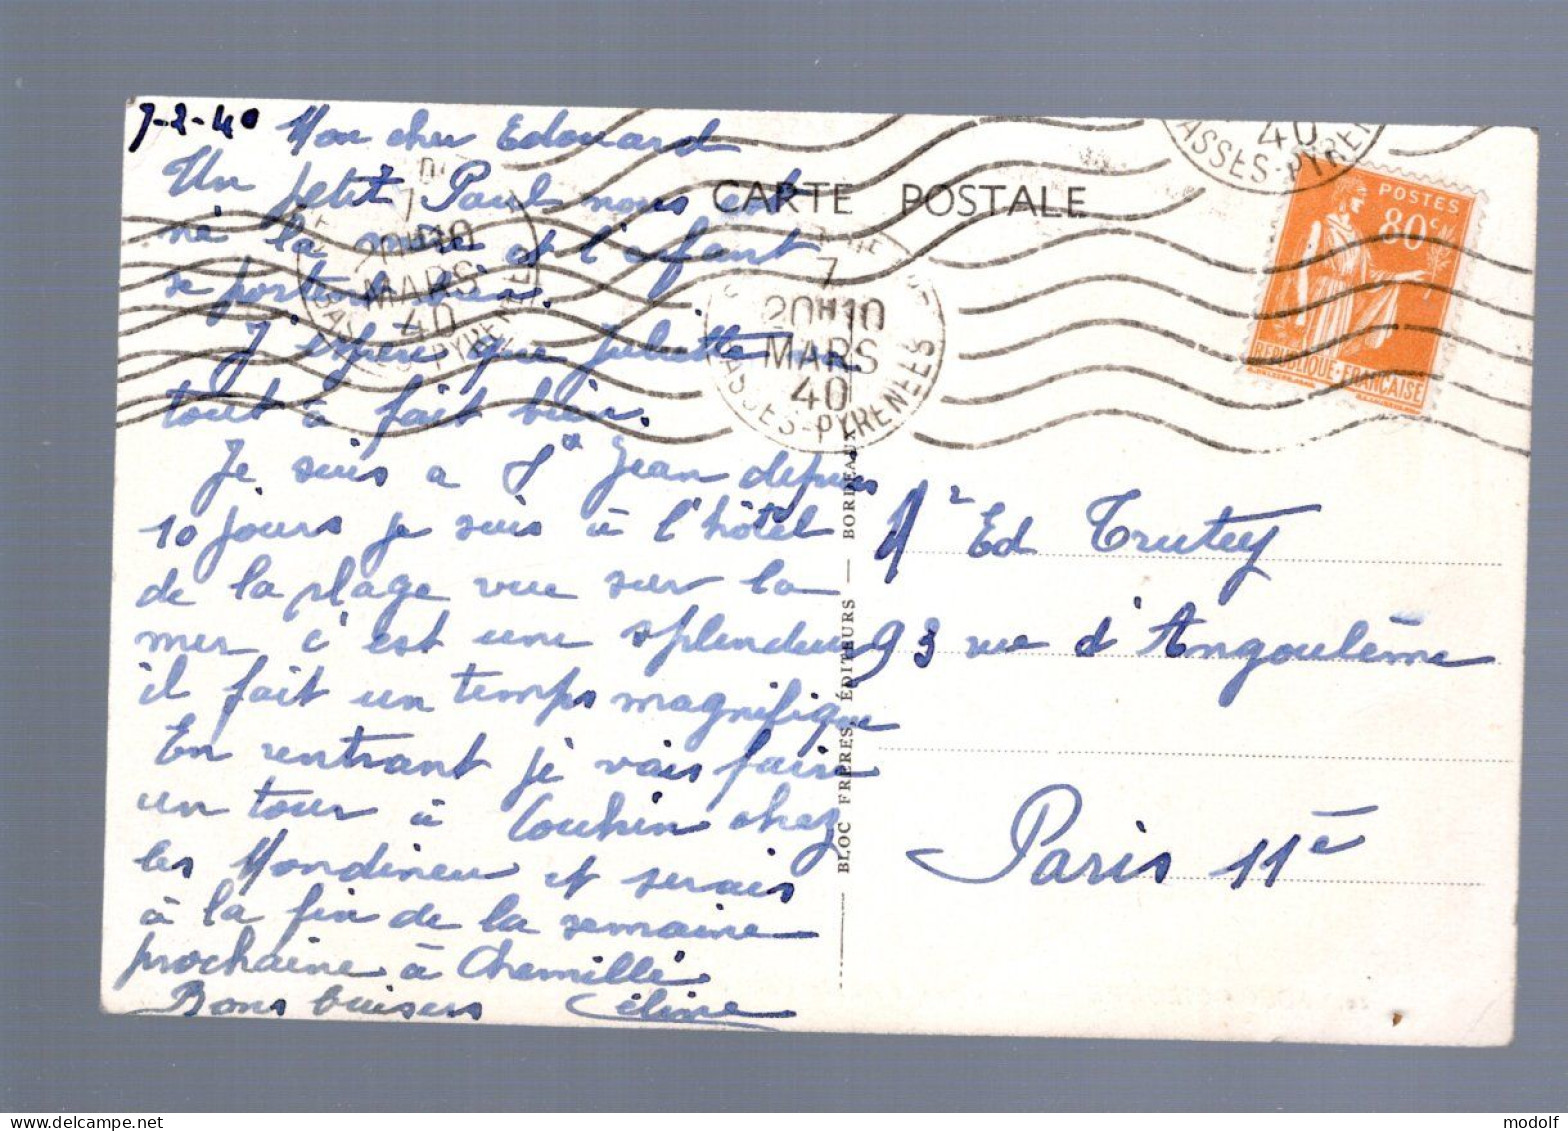 7-2-40 Mon cher Edouard
Un petit Paul nous est
né la mère et l'efant
se portent bien.
J'espère que Juliette va
tout à fait bien.
Je suis a St Jean depuis
10 jours je suis à l'hôtel
de la plage vue sur la
mer c'est une splendeur
il fait un temps magnifique
En rentrant je vais faire
un tour à chez
les et serais
à la fin de la semaine
prochaine à Chemillé
Bons baisers Céline
CARTE POSTALE
7
20H10
MARS
40
BASSES-PYRENEES
7
20H10
MARS
40
BASSES-PYRENEES
40
BASSES-PYRENEES
POSTES
80c
REPUBLIQUE·FRANCAISE
BLOC FRERES, ÉDITEURS — BORDEAUX
Mr Ed Trutey
93 rue d'Angoulème
Paris 11è
delcampe.net
modolf